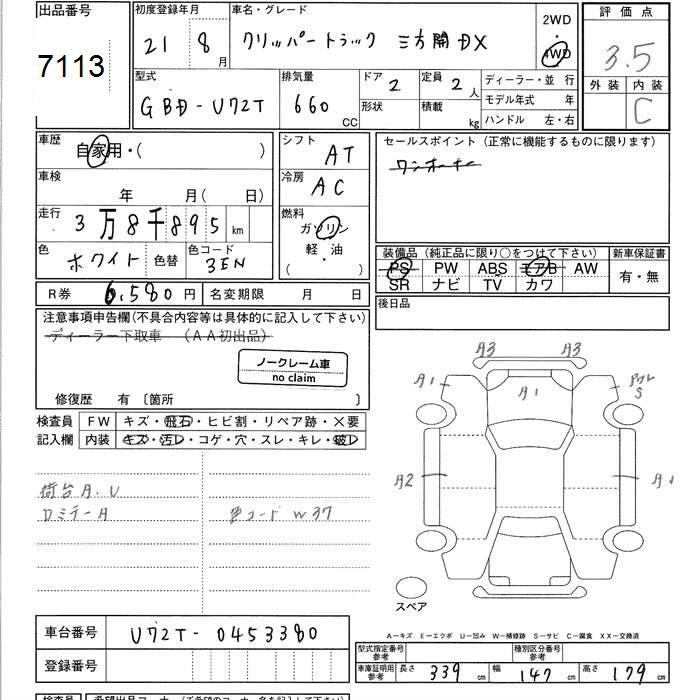 出品番号
7113
初度登録年月
21 8 月
車名・グレード
クリッパートラック 三方開 DX
2WD
・
4WD
評価点
3.5
外装 内装
C
型式
GBD-U72T
排気量
660 CC
ドア 2
形状
定員 2 人
積載 kg
ディーラー・並 行
モデル年式 年
ハンドル 左・右
車歴
自家用・( )
シフト
AT
セールスポイント (正常に機能するものに限ります)
ワンオーナー
車検
年 月( 日)
冷房
AC
走行
3万8千895 km
燃料
ガソリン
軽・油
( )
色
ホワイト 色替
色コード
3EN
装備品 (純正品に限り○をつけて下さい)
PS PW ABS エアB AW
SR ナビ TV カワ
新車保証書
有・無
R券 6,580 円 名変期限 月 日
後日品
注意事項申告欄(不具合内容等は具体的に記入して下さい)
ディーラー下取車 (AA初出品)
ノークレーム車
no claim
修復歴 有〔箇所 〕
検査員
記入欄
FW キズ・飛石・ヒビ割・リペア跡・×要
内装 キズ・汚レ・コゲ・穴・スレ・キレ・破レ
荷台A.U
DミラーA
色コード W37
A3 A3
A1 A1 S
A2 A1
スペア
A-キズ E-エクボ U-凹み W-補修跡 S-サビ C-腐食 XX-交換済
車台番号 U72T-0453380
登録番号
型式指定番号
参考
種別区分番号
参考
車庫証明用
参考
長さ 339 cm 幅 147 cm 高さ 179 cm
検査員 希望出品コーナー(ご希望のコーナー名を記入して下さい)